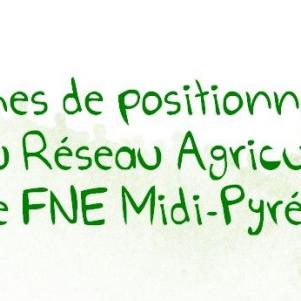 nes de positionn
u Réseau Agricu
e FNE Midi-Pyré